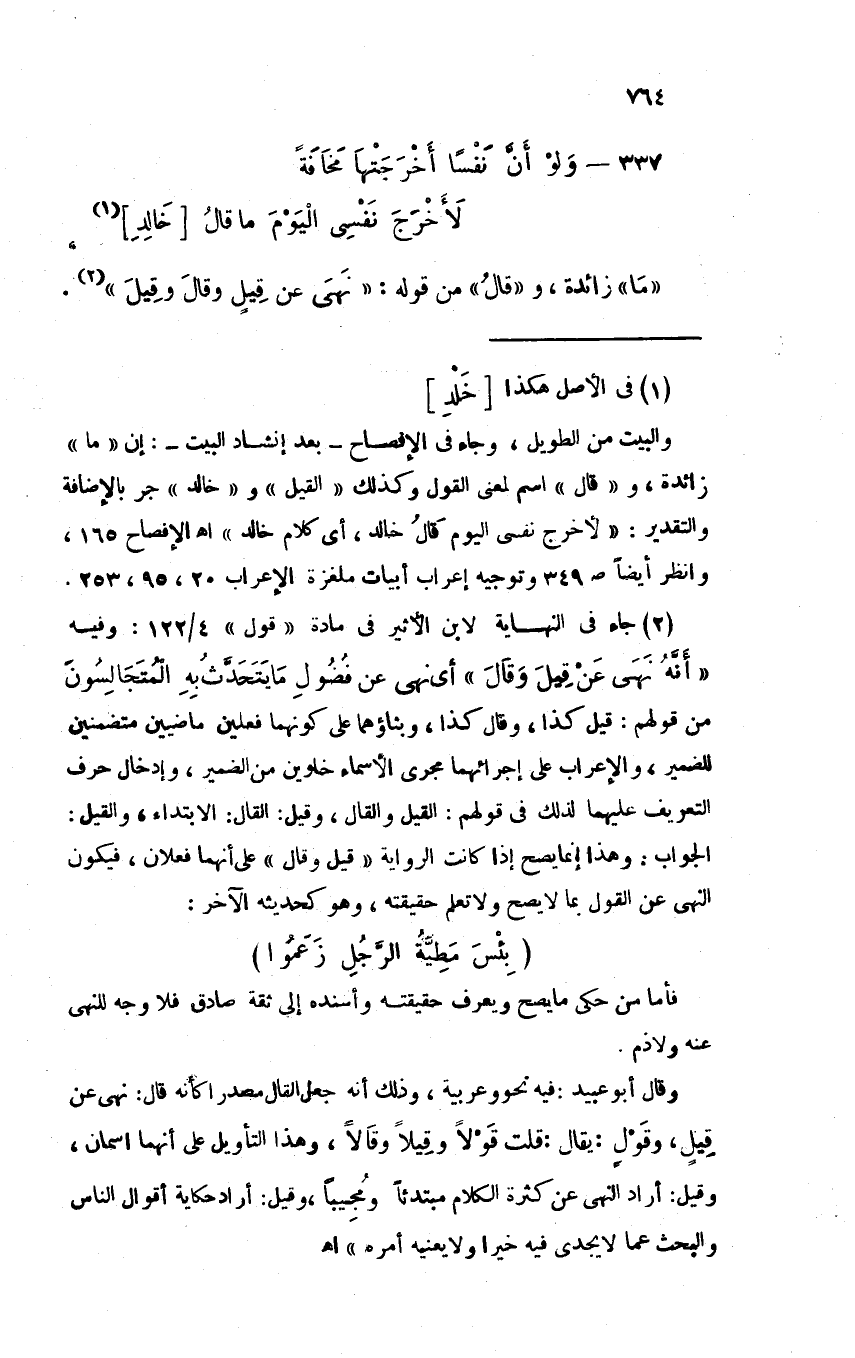 ٧٦٤
٣٣٧ — وَلَوْ أَنَّ نَفْسًا أَخْرَجَتْهَا مَخَافَةً
لَأَخْرَجَ نَفْسِى الْيَوْمَ ما قالُ [ خَالِدِ ](١)
«مَا» زائدة ، و «قالُ» من قوله : « نَهَى عن قِيلٍ وقالَ وقِيلَ »(٢) .
(١) فى الأصل هكذا [ خَلْدِ ]
والبيت من الطويل ، وجاء فى الإفصاح – بعد إنشاد البيت – : إن « ما »
زائدة ، و « قال » اسم لمعنى القول وكذلك « القيل » و « خالد » جر بالإضافة
والتقدير : « لأخرج نفسى اليوم قالُ خالد ، أى كلام خالد » اه الإفصاح ١٦٥ ،
وانظر أيضاً ص ٣٤٩ وتوجيه إعراب أبيات ملغزة الإعراب ٢٠ ، ٩٥ ، ٢٥٣ .
(٢) جاء فى النهاية لابن الأثير فى مادة « قول » ١٢٢/٤ : وفيه
« أَنَّهُ نَهَى عَنْ قِيلَ وَقَالَ » أى نهى عن فُضُولِ مَا يَتَحَدَّثُ بِهِ الْمُتَجَالِسُونَ
من قولهم : قيل كذا ، وقال كذا ، وبناؤهما على كونهما فعلين ماضيين متضمنين
للضمير ، والإعراب على إجرائهما مجرى الأسماء خلوين من الضمير ، وإدخال حرف
التعريف عليهما لذلك فى قولهم : القيل والقال ، وقيل: القال: الابتداء ، والقيل :
الجواب : وهذا إنما يصح إذا كانت الرواية « قيل وقال » على أنهما فعلان ، فيكون
النهى عن القول بما لا يصح ولا تعلم حقيقته ، وهو كحديثه الآخر :
( بِئْسَ مَطِيَّةُ الرَّجُلِ زَعَمُوا )
فأما من حكى ما يصح ويعرف حقيقته وأسنده إلى ثقة صادق فلا وجه للنهى
عنه ولا ذم .
وقال أبو عبيد : فيه نحو وعربية ، وذلك أنه جعل القال مصدرا كأنه قال: نهى عن
قِيلٍ، وقَوْلٍ : يقال : قلت قَوْلاً وقِيلاً وقَالاً ، وهذا التأويل على أنهما اسمان ،
وقيل: أراد النهى عن كثرة الكلام مبتدئاً ومُجِيباً ، وقيل: أراد حكاية أقوال الناس
والبحث عما لا يجدى فيه خيرا ولا يعنيه أمره » اه